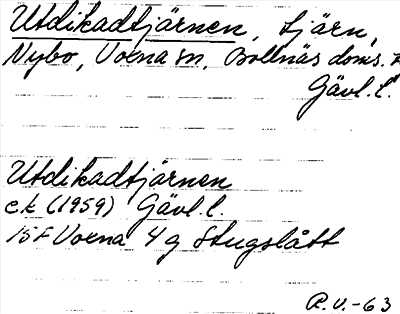 Utdikadtjärnen, tjärn,
Nybo, Voxna sn, Bollnäs doms.
Gävl. l.
Utdikadtjärnen
ek (1959) Gävl. l.
15F Voxna 4 g Stugslått
R.V.-63